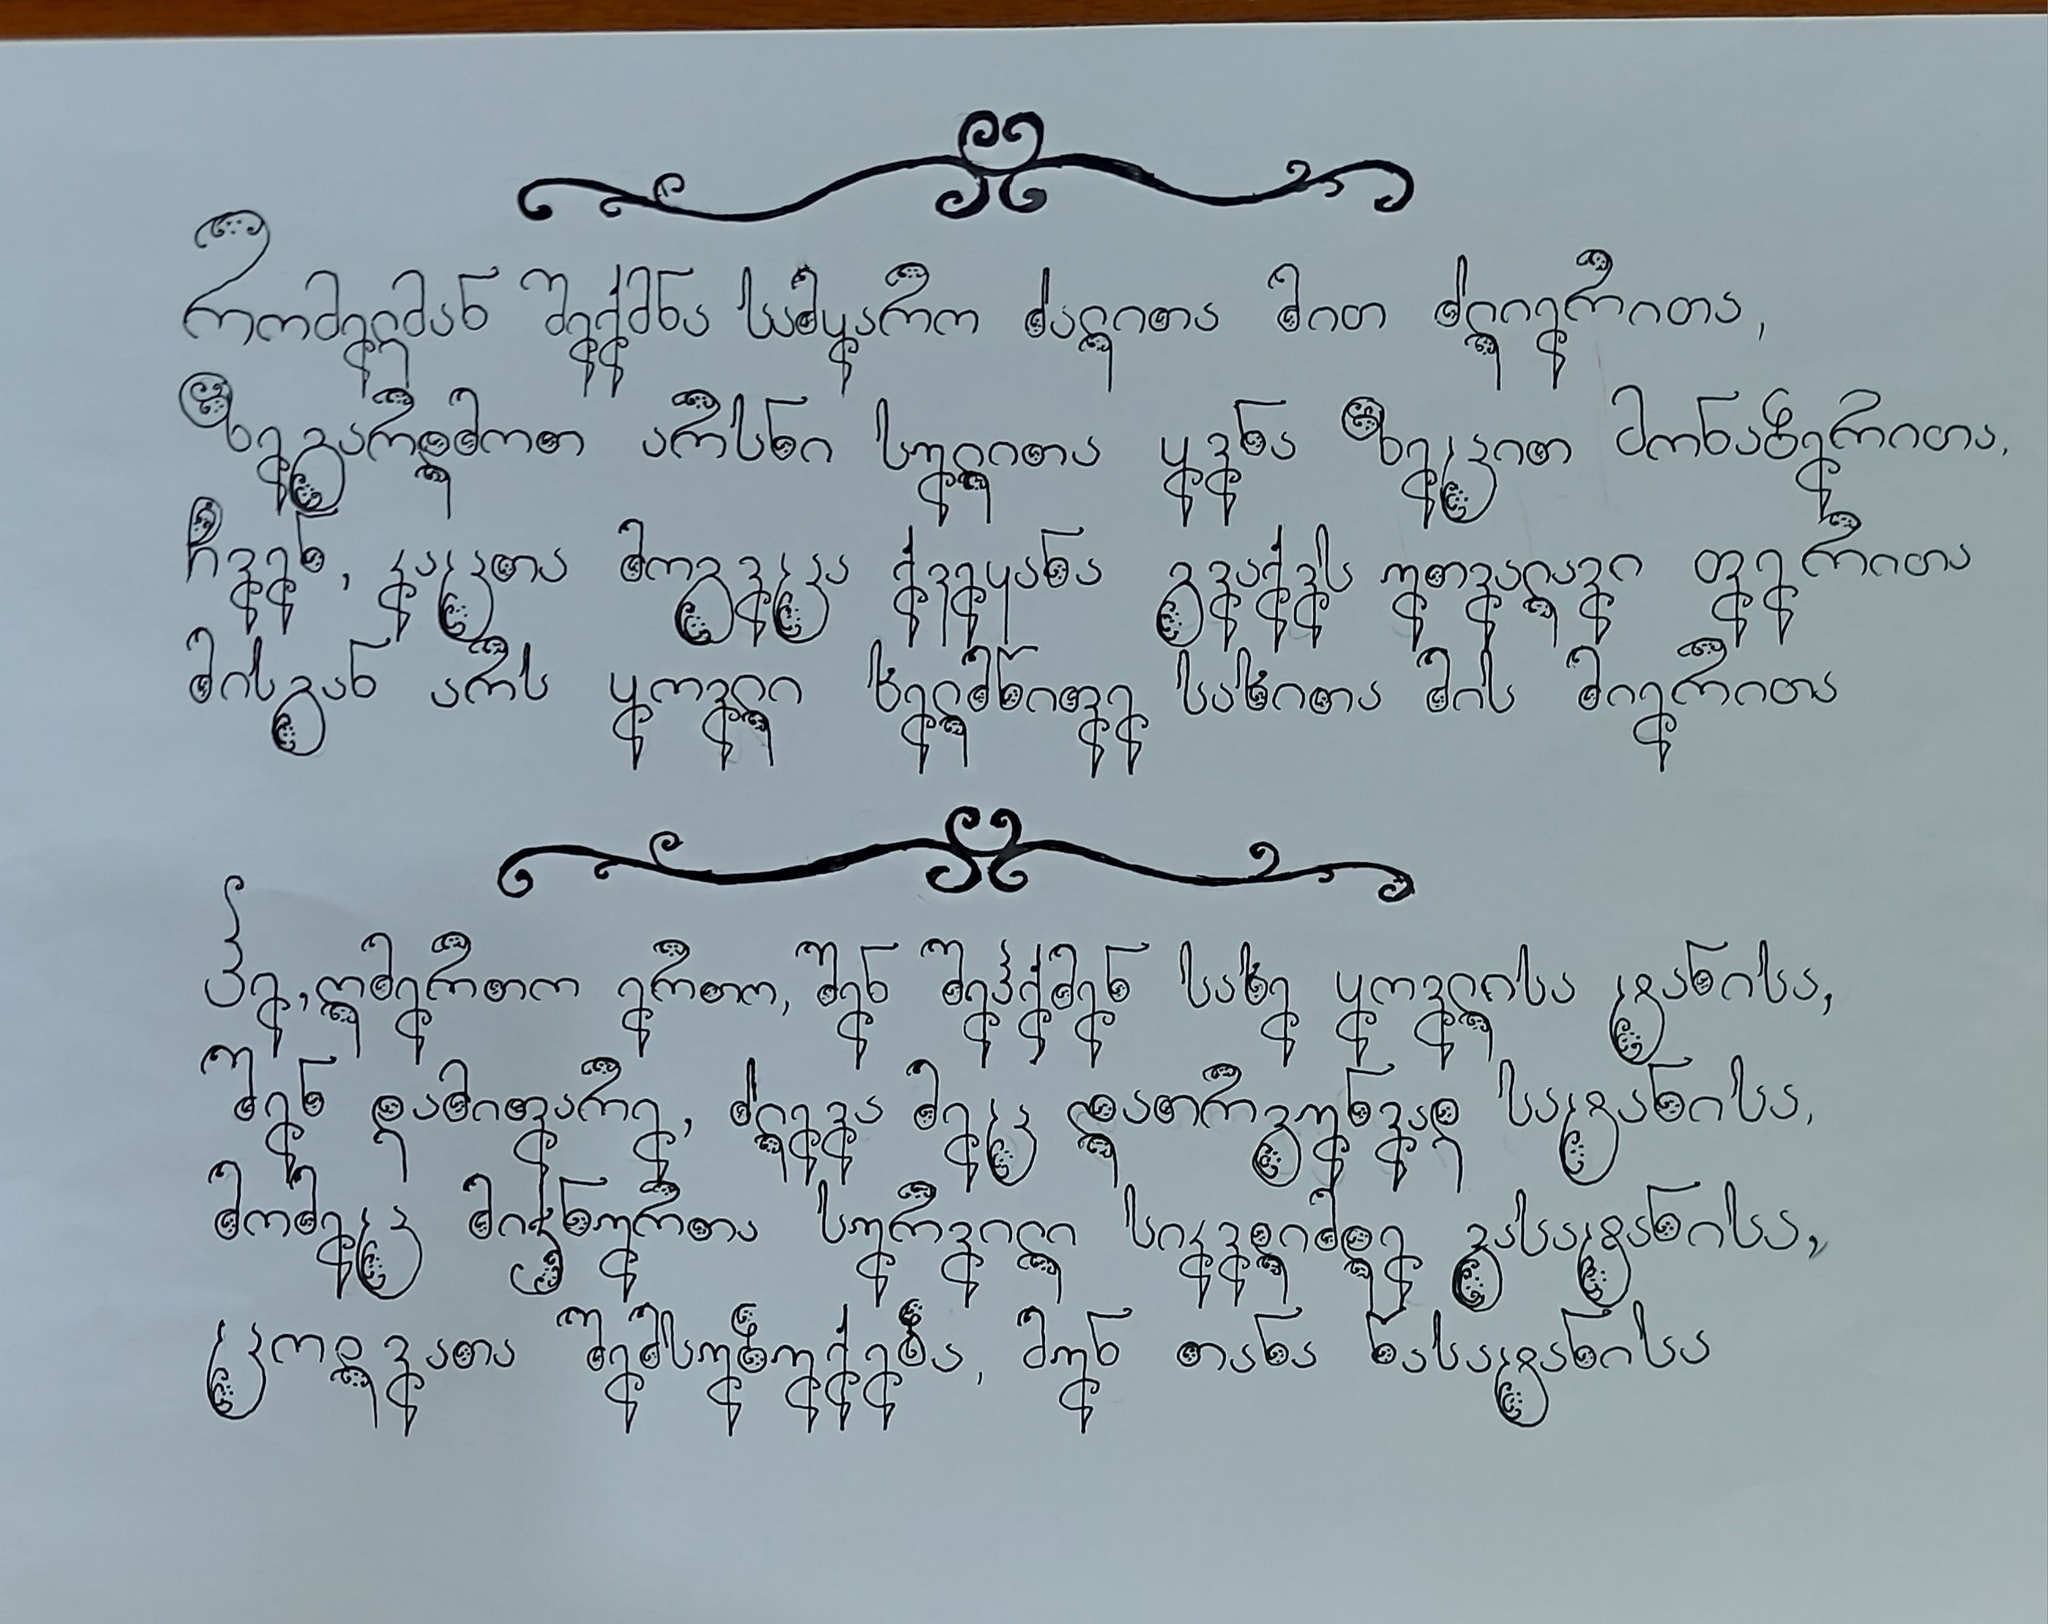 რომელმან შექმნა სამყარო ძალითა მით ძლიერითა,
ზეგარდმოთ არსნი სულითა ყვნა ზეცით მონაბერითა,
ჩვენ, კაცთა მოგვცა ქვეყანა გვაქვს უთვალავი ფერითა
მისგან არს ყოვლი ხელმწიფე სახითა მის მიერითა
ჰე, ღმერთო ერთო, შენ შეჰქმენ სახე ყოვლისა ტანისა,
შენ დამიფარე, ძლევა მეც დათრგუნვად სატანისა,
მომეც მიჯნურთა სურვილი სიკვდიდმდე გასატანისა,
ცოდვათა შემსუბუქება, მუნ თანა წასატანისა